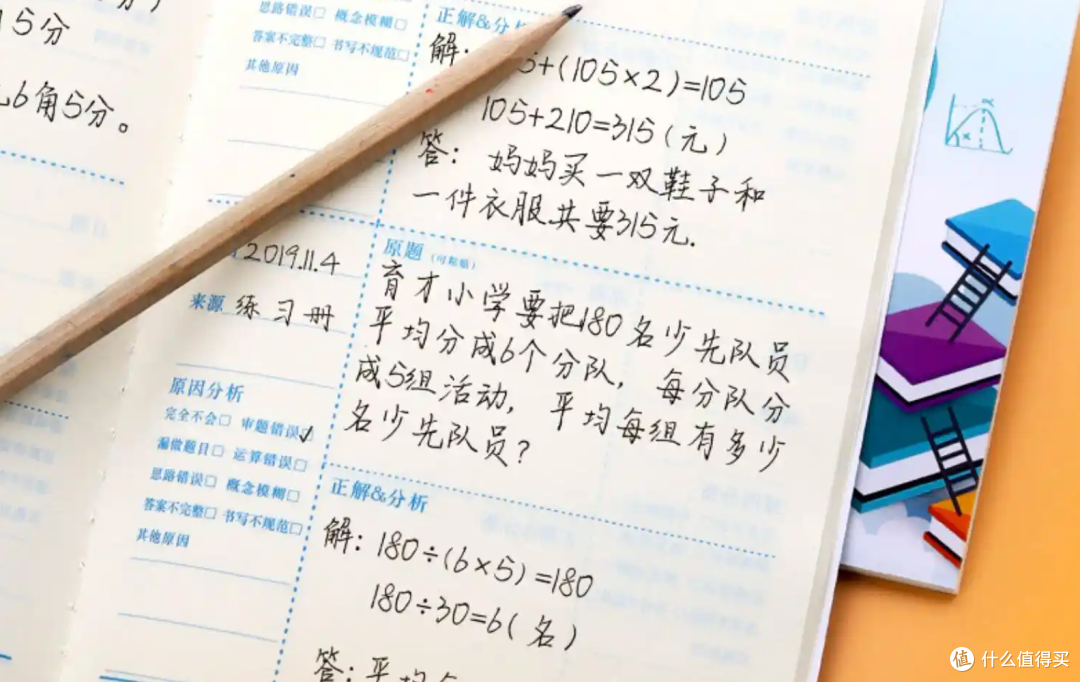 15分
6角5分。
思路错误□ 概念模糊□
答案不完整□ 书写不规范□
其他原因
正解&分析
解:
5+(105×2)=105
105+210=315(元)
答: 妈妈买一双鞋子和
一件衣服共要315元.
2019.11.4
来源 练习册
原因分析
完全不会□ 审题错误□✓
漏做题目□ 运算错误□
思路错误□ 概念模糊□
答案不完整□ 书写不规范□
其他原因
原题 (可粘贴)
育才小学要把180名少先队员
平均分成6个分队, 每分队分
成5组活动, 平均每组有多少
名少先队员?
正解&分析
解: 180÷(6×5)=180
180÷30=6(名)
答: 平均
值 什么值得买